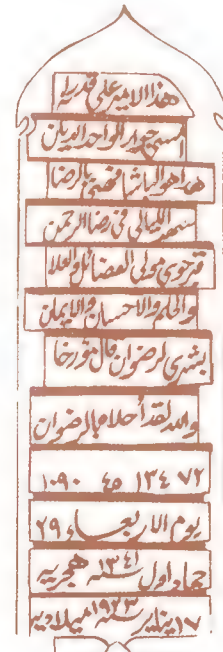 هذا الامير على قدره
امسى جوار الواحد الديان
هذا هو الباشا فهمى بالرضا
سهر الليالى فى رضا الرحمن
قد حوى الفضائل والعلا
والحلم والاحسان والايمان
بشرى لرضوان قال مؤرخا
والله لقد أحلاه بالرضوان
٧٢ ١٣٤ ٤٥ ١٠٩٠
يوم الاربعاء ٢٩
جماد اول سنة ١٣٤١ هجريه
١٧ يناير سنة ١٩٢٣ ميلاديه